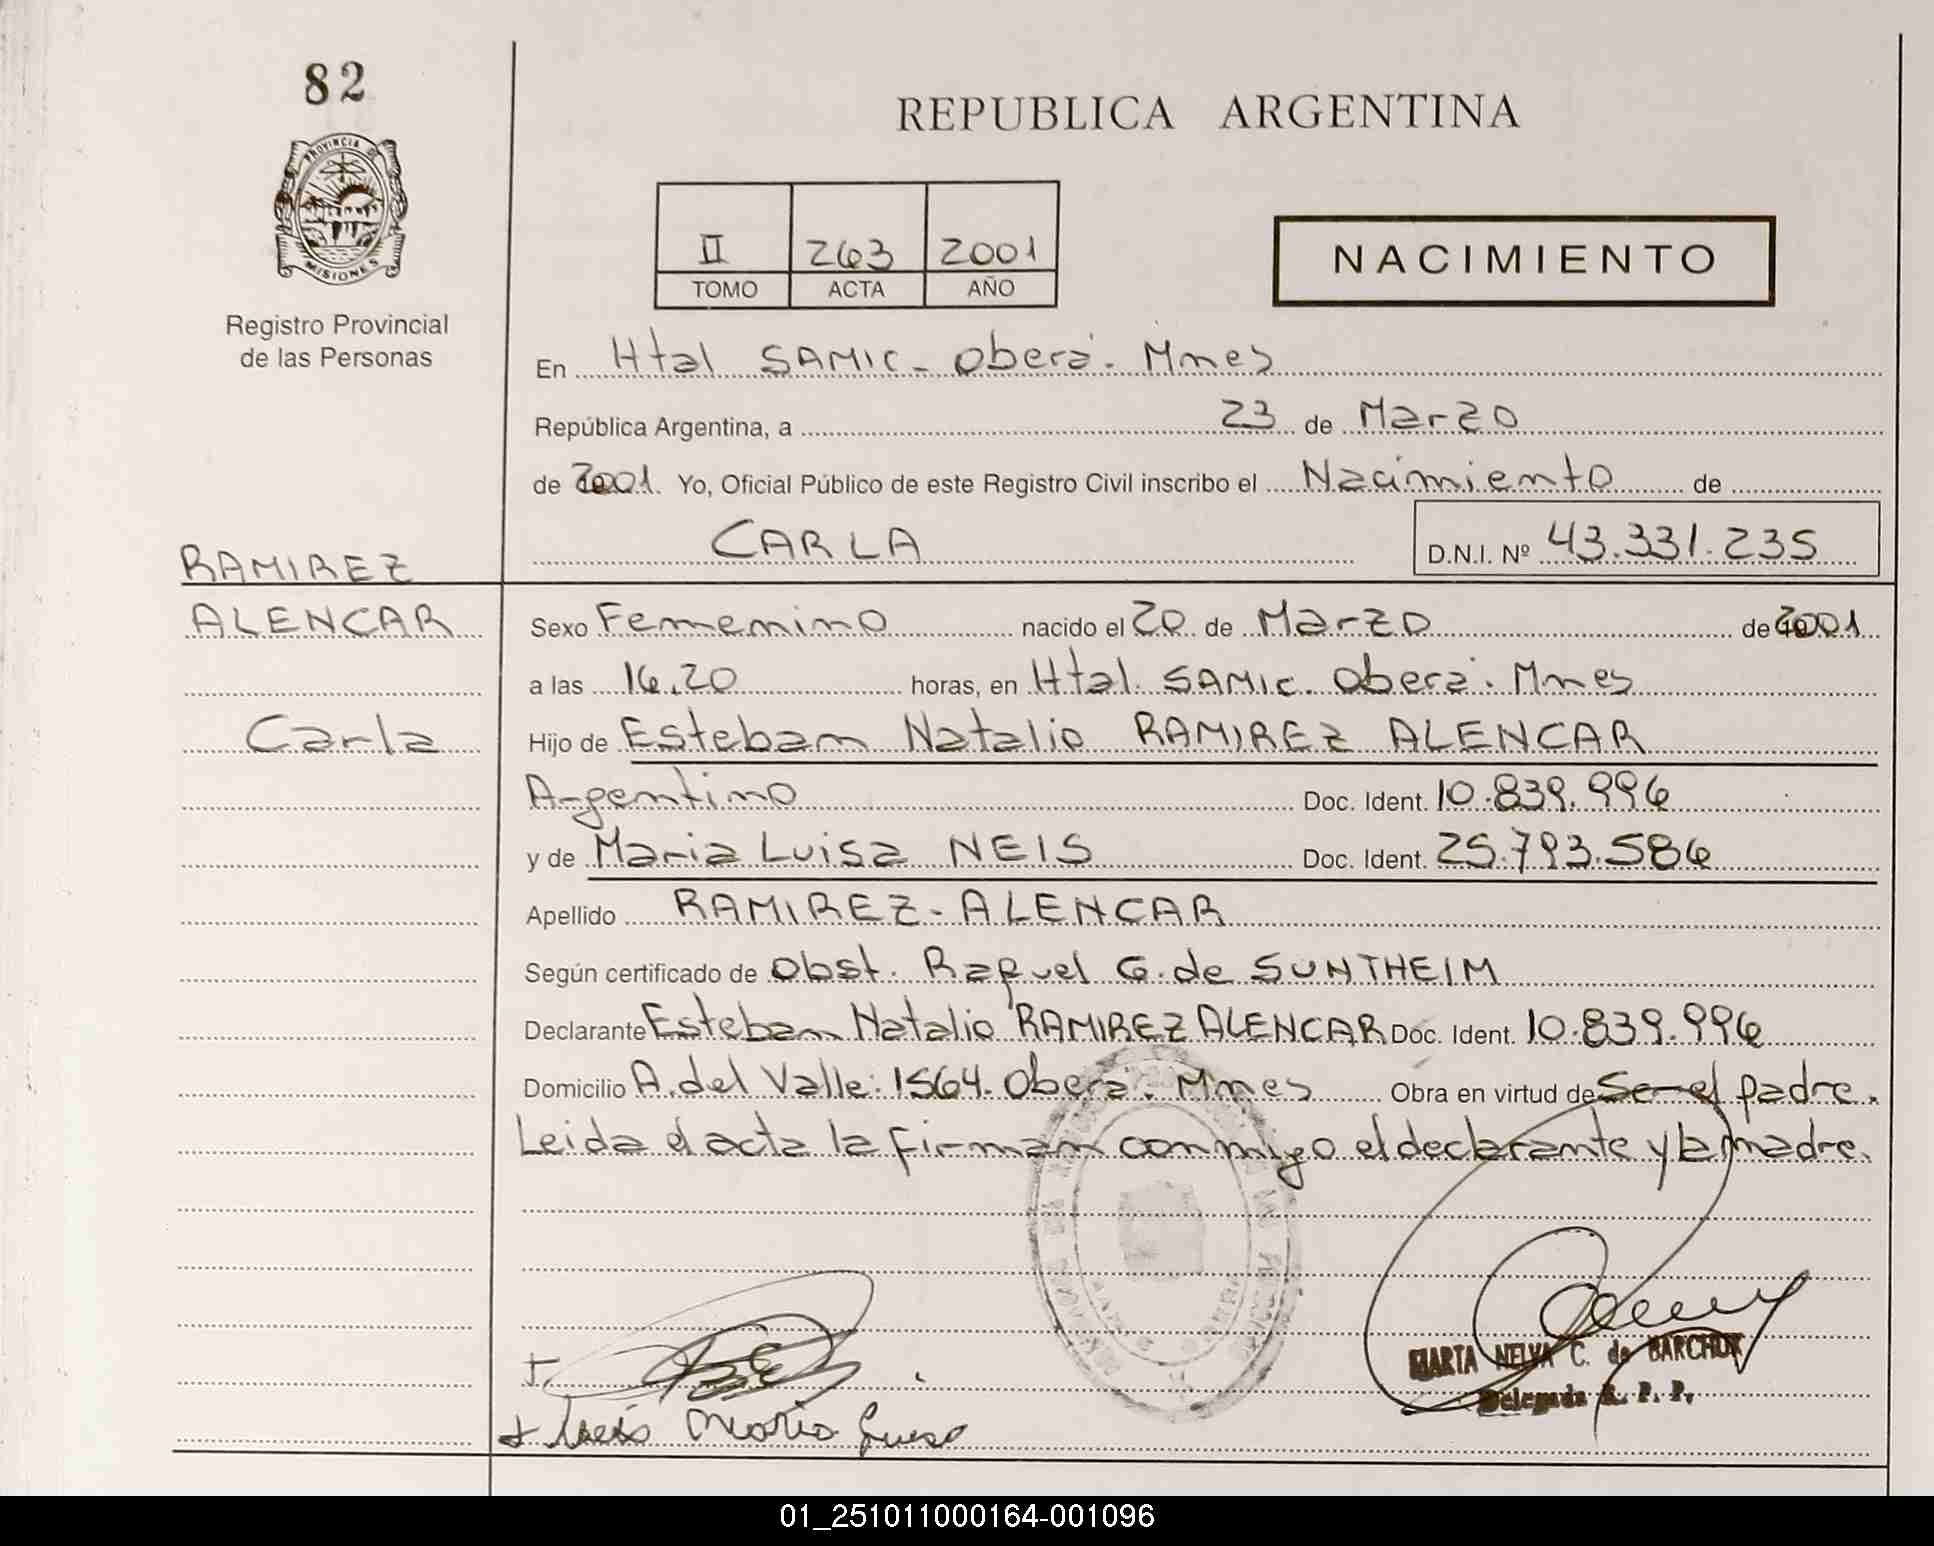 82
PROVINCIA DE
MISIONES
Registro Provincial
de las Personas
REPUBLICA ARGENTINA
II 263 2001
TOMO ACTA AÑO
NACIMIENTO
En Htal SAMIC - Oberá. Mnes
República Argentina, a 23 de Marzo
de 2001. Yo, Oficial Público de este Registro Civil inscribo el Nacimiento de
CARLA D.N.I. Nº 43.331.235
RAMIREZ
ALENCAR
Carla
Sexo Femenino nacido el 20 de Marzo de 2001
a las 16.20 horas, en Htal. SAMIC. Oberá. Mnes
Hijo de Esteban Natalio RAMIREZ ALENCAR
Argentino Doc. Ident. 10.839.996
y de Maria Luisa NEIS Doc. Ident. 25.793.586
Apellido RAMIREZ - ALENCAR
Según certificado de Obst. Raquel G. de SUNTHEIM
Declarante Esteban Natalio RAMIREZ ALENCAR Doc. Ident. 10.839.996
Domicilio A. del Valle: 1564. Oberá. Mnes Obra en virtud de Ser el padre.
Leida el acta la firman conmigo el declarante y la madre.
MARTA NELVA C. de BARCHUK
Delegada R. P. P.
Neis Maria Luisa
01_251011000164-001096